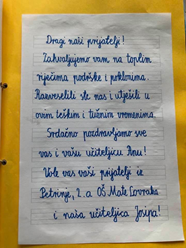 Dragi naši prijatelji!
Zahvaljujemo vam na toplim
riječima podrške i poklonima.
Razveselili ste nas i utješili u
ovim teškim i tužnim vremenima.
Srdačno pozdravljamo sve
vas i vašu učiteljicu Anu!
Vole vas vaši prijatelji iz
Petrinje, 2.a OŠ Mate Lovraka
i naša učiteljica Josipa!